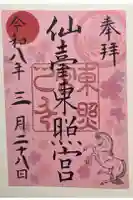 奉拝
仙臺東照宮
東照
令和八年三月二十八日